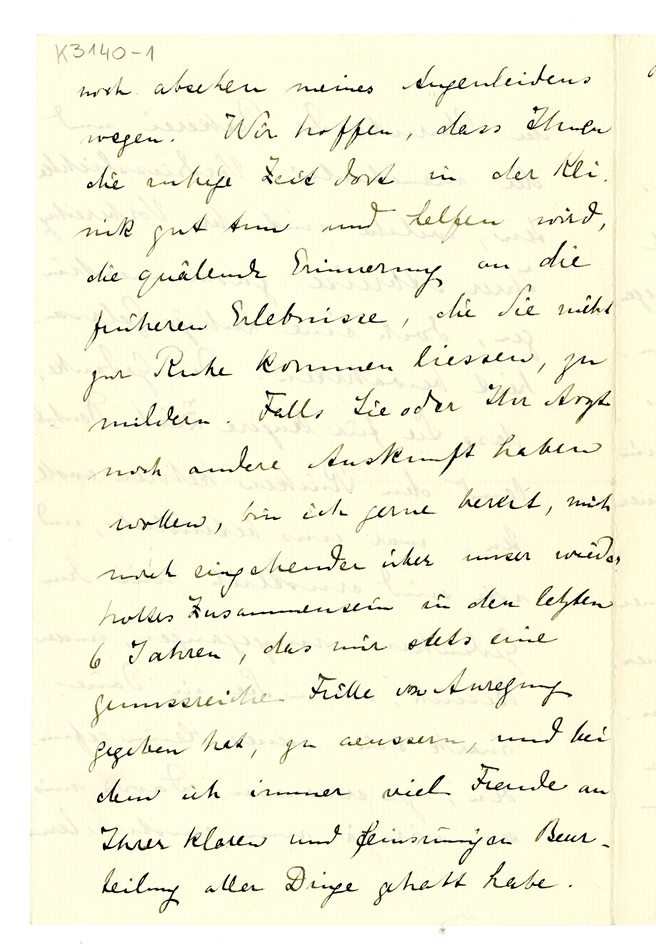 K3140-1
noch absehen meines Augenleidens
wegen. Wir hoffen, dass Ihnen
die ruhige Zeit dort in der Kli-
nik gut tun und helfen wird,
die quälende Erinnerung an die
früheren Erlebnisse, die Sie nicht
zur Ruhe kommen liessen, zu
mildern. Falls Sie oder Ihr Arzt
noch andere Auskunft haben
wollen, bin ich gerne bereit, mich
noch eingehender über unser wieder
holtes Zusammensein in den letzten
6 Jahren, das mir stets eine
genussreiche Fülle von Anregung
gegeben hat, zu aeussern, und bei
dem ich immer viel Freude an
Ihrer klaren und feinsinnigen Beur-
teilung aller Dinge gehabt habe.